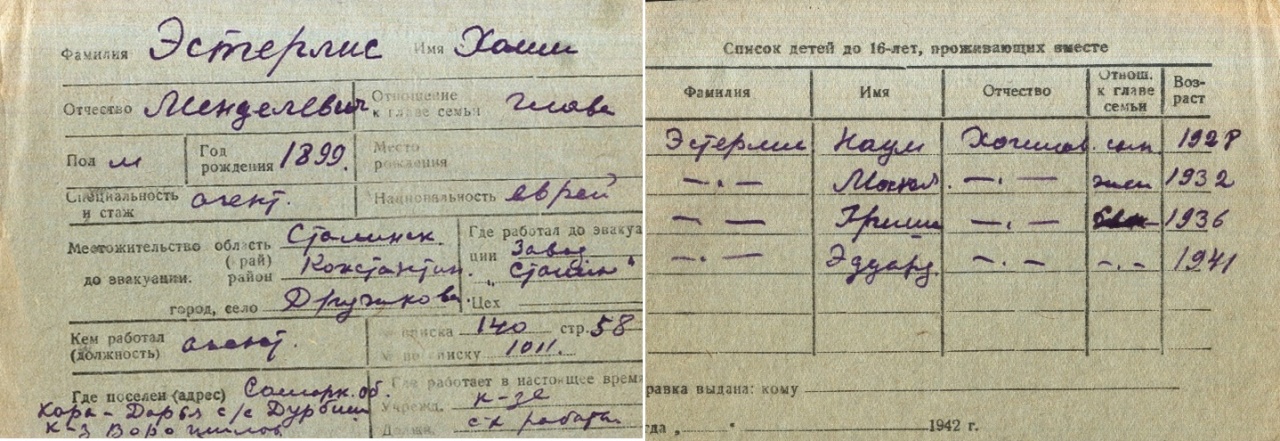 Фамилия Эстерлис Имя Хаим
Отчество Менделевич Отношение к главе семьи глава
Пол м Год рождения 1899. Место рождения
Специальность и стаж агент. Национальность еврей
Местожительство до эвакуации. область (край) Сталинск. Где работал до эвакуации Завод
район Константин. „Сталин“
город, село Дружковка. Цех
Кем работал (должность) агент. списка 140 стр. 58
№ по списку 1011.
Где поселен (адрес) Самарк. об. Где работает в настоящее время
Кара-Дарья с/с Дурбин Учрежд. к-зе
к-з Ворошилов Должн. с-х работы
Список детей до 16-лет, проживающих вместе
Фамилия Имя Отчество Отнош. к главе семьи Возраст
Эстерлис Наум Хаимов. сын 1928
— . — — . — 1932
— . — Гриша — . — 1936
— . — Эдуард. — . — - . - 1941
равка выдана: кому
гда „ “ 1942 г.